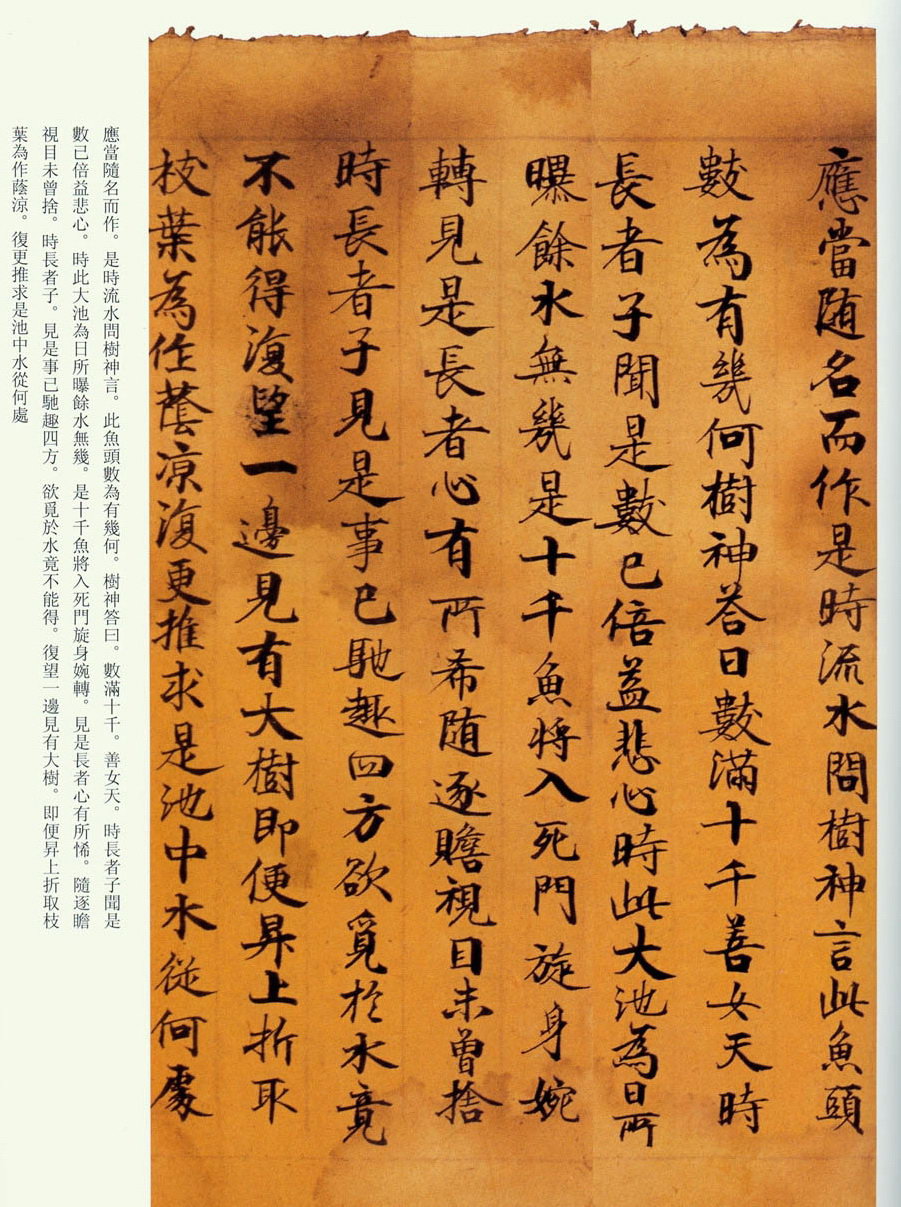 應當随名而作是時流水問樹神言此魚頭
數為有幾何樹神荅曰數滿十千善女天時
長者子聞是數已倍益悲心時此大池為日所
曝餘水無幾是十千魚將入死門旋身婉
轉見是長者心有所希随逐瞻視目未曾捨
時長者子見是事已馳趣四方欲覓於水竟
不能得復望一邊見有大樹即便昇上折取
枝葉為作蔭凉復更推求是池中水從何處
應當隨名而作。是時流水問樹神言。此魚頭數為有幾何。樹神答曰。數滿十千。善女天。時長者子聞是
數已倍益悲心。時此大池為日所曝餘水無幾。是十千魚將入死門旋身婉轉。見是長者心有所悕。隨逐瞻
視目未曾捨。時長者子。見是事已馳趣四方。欲覓於水竟不能得。復望一邊見有大樹。即便昇上折取枝
葉為作蔭涼。復更推求是池中水從何處